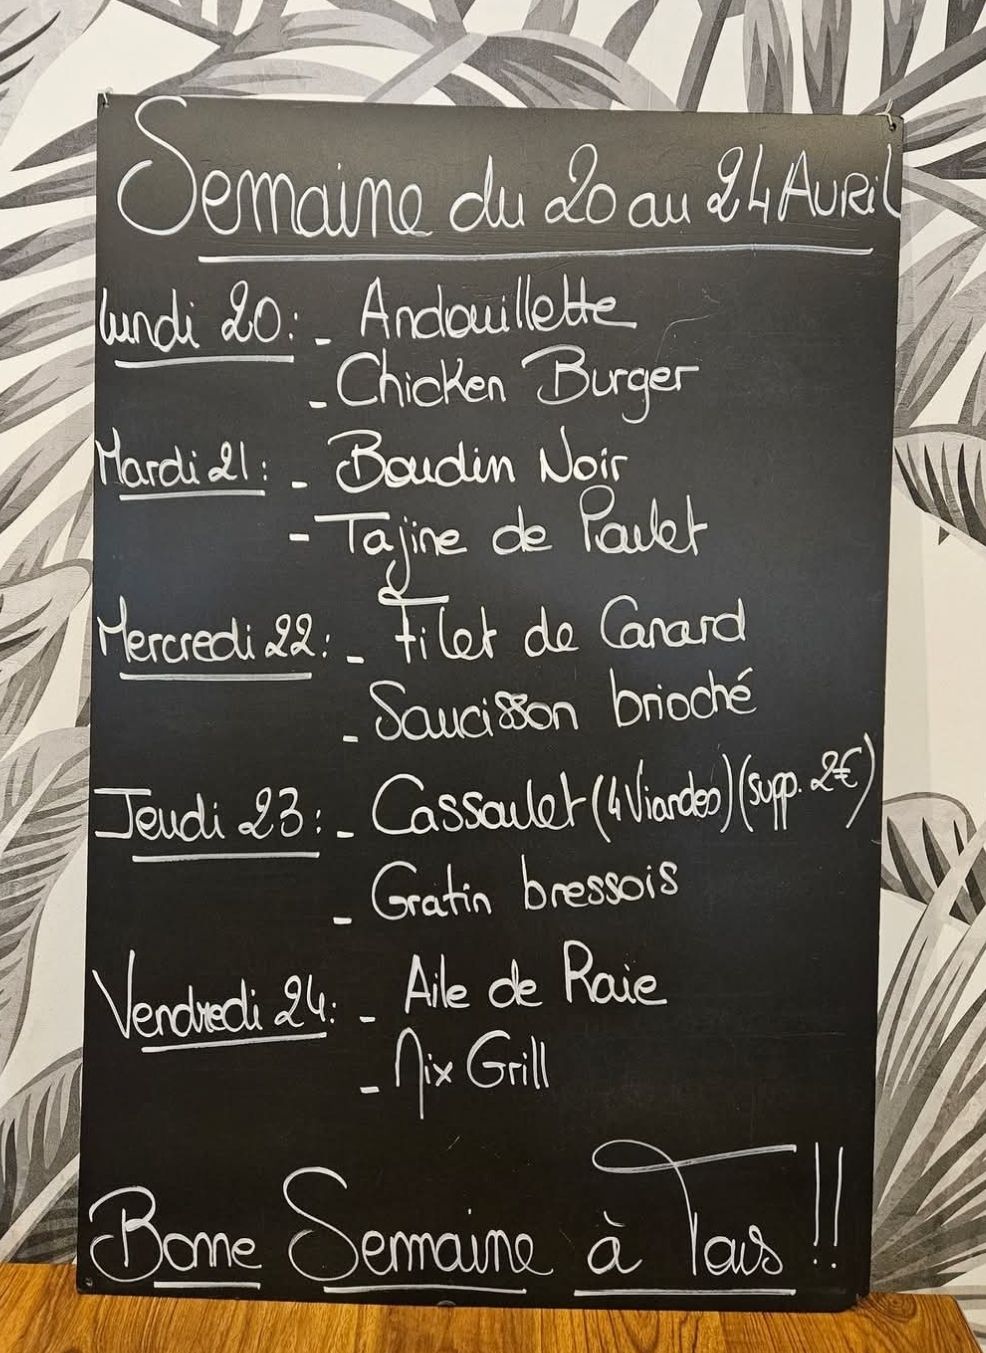 Semaine du 20 au 24 Avril
Lundi 20: - Andouillette
- Chicken Burger
Mardi 21: - Boudin Noir
- Tajine de Poulet
Mercredi 22: - Filet de Canard
- Saucisson brioché
Jeudi 23: - Cassoulet (4 Viandes) (supp. 2€)
- Gratin bressois
Vendredi 24: - Aile de Raie
- Mix Grill
Bonne Semaine à Tous !!